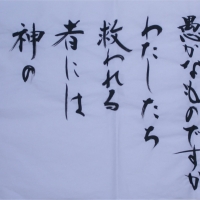 愚かなものですが
わたしたち
救われる
者には
神の